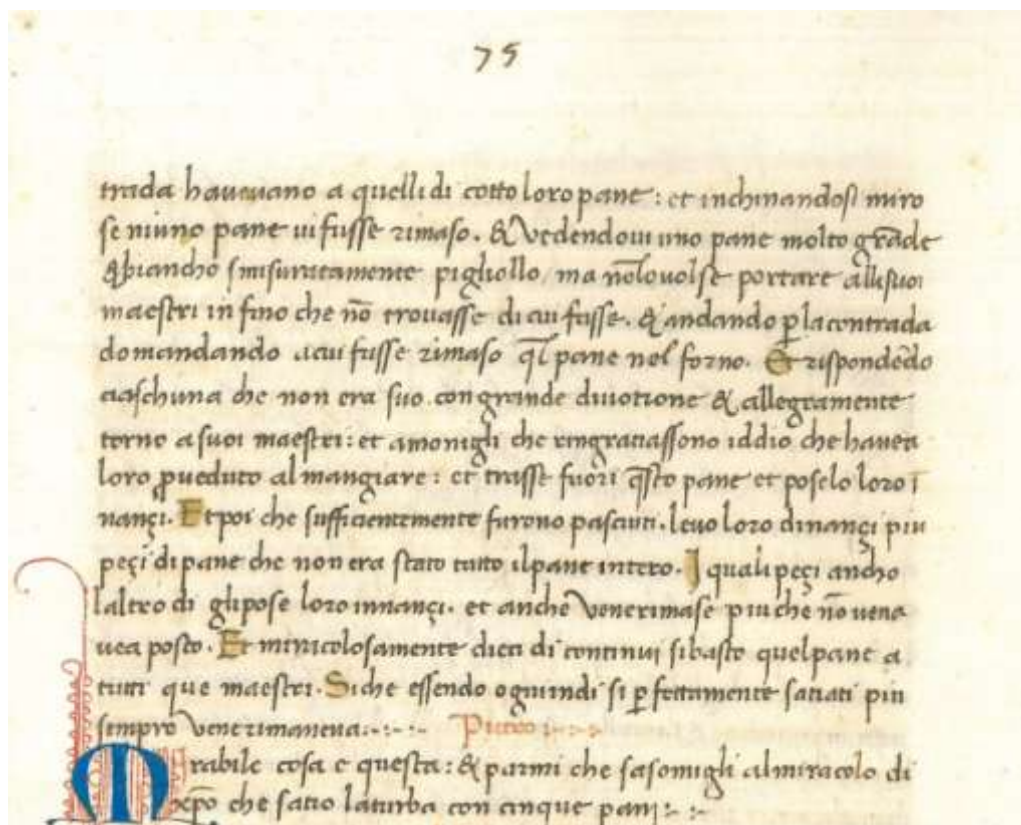 75
trada havevano a quelli di cotto loro pane : et inchinandosi miro
se niuno pane vi fusse rimaso. & Vedendovi uno pane molto grāde
& biancho smisuratamente pigliollo, ma nō lo volse portare alli suoi
maestri in fino che nō trovasse di cui fusse. & andando ꝑ la contrada
domandando a cui fusse rimaso ql pane nel forno. E rispondēdo
ciaschuna che non era suo. con grande divotione & allegramente
torno a suoi maestri : et amonigli che ringratiassono iddio che havea
loro ꝓveduto al mangiare : et trasse fuori q̄sto pane et poselo loro ī
nançi. Et poi che sufficientemente furono pasciuti. levo loro dinançi piu
peçi di pane che non era stato tutto il pane intero. I quali peçi ancho
laltro di gli pose loro innançi. et anche Vene rimase piu che nō vena
vea posto. Et miricolosamente dieci di continui si basto quel pane a
tutti que maestri. Siche essendo ogniundi si ꝑfettamente satiati piu
sempre Vene rimaneva :~:~:~
Mirabile cosa e questa : & parmi che sasomigli al miracolo di
xp̄o che satio la turba con cinque pani :~:~